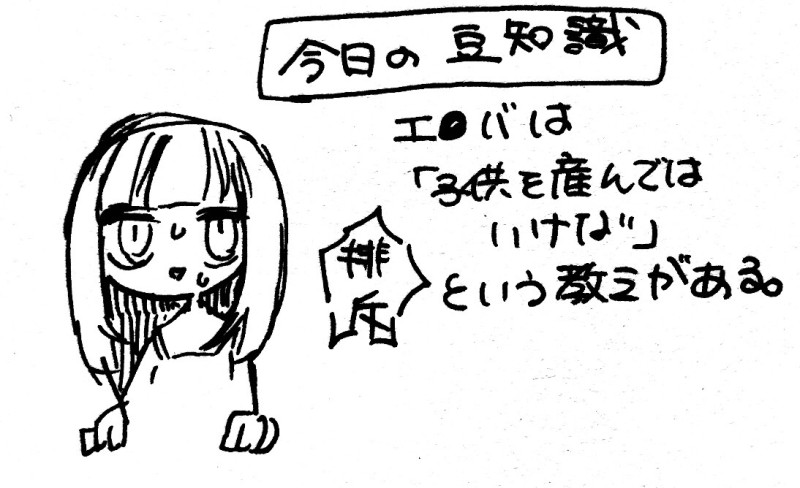 今日の豆知識
エ●バは
「子供を産んでは
いけない」
という教えがある。
排